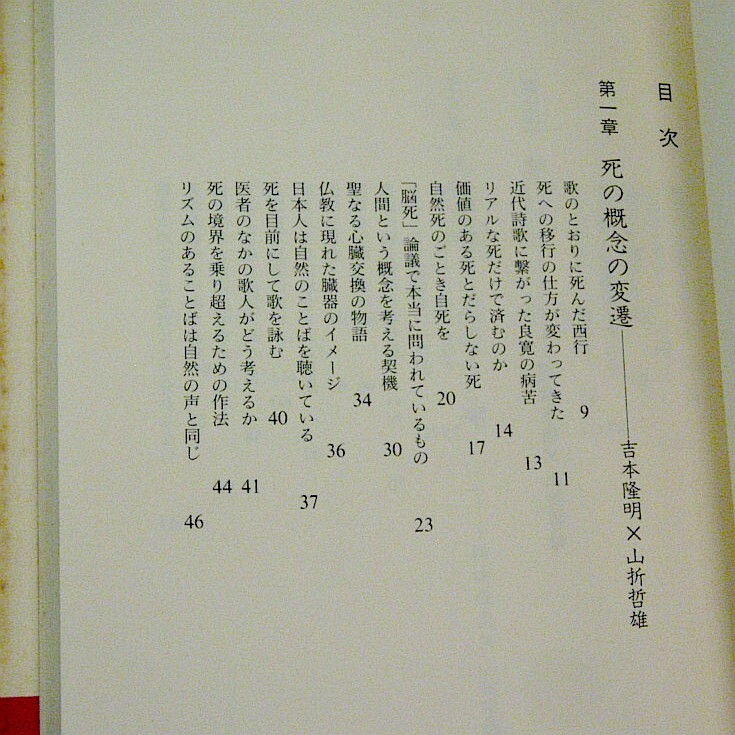 目次
第一章 死の概念の変遷――吉本隆明×山折哲雄
歌のとおりに死んだ西行 9
死への移行の仕方が変わってきた 11
近代詩歌に繋がった良寛の病苦 13
リアルな死だけで済むのか 14
価値のある死とだらしない死 17
自然死のごとき自死を 20
「脳死」論議で本当に問われているもの 23
人間という概念を考える契機 30
聖なる心臓交換の物語 34
仏教に現れた臓器のイメージ 36
日本人は自然のことばを聴いている 37
死を目前にして歌を詠む 40
医者のなかの歌人がどう考えるか 41
死の境界を乗り超えるための作法 44
リズムのあることばは自然の声と同じ 46